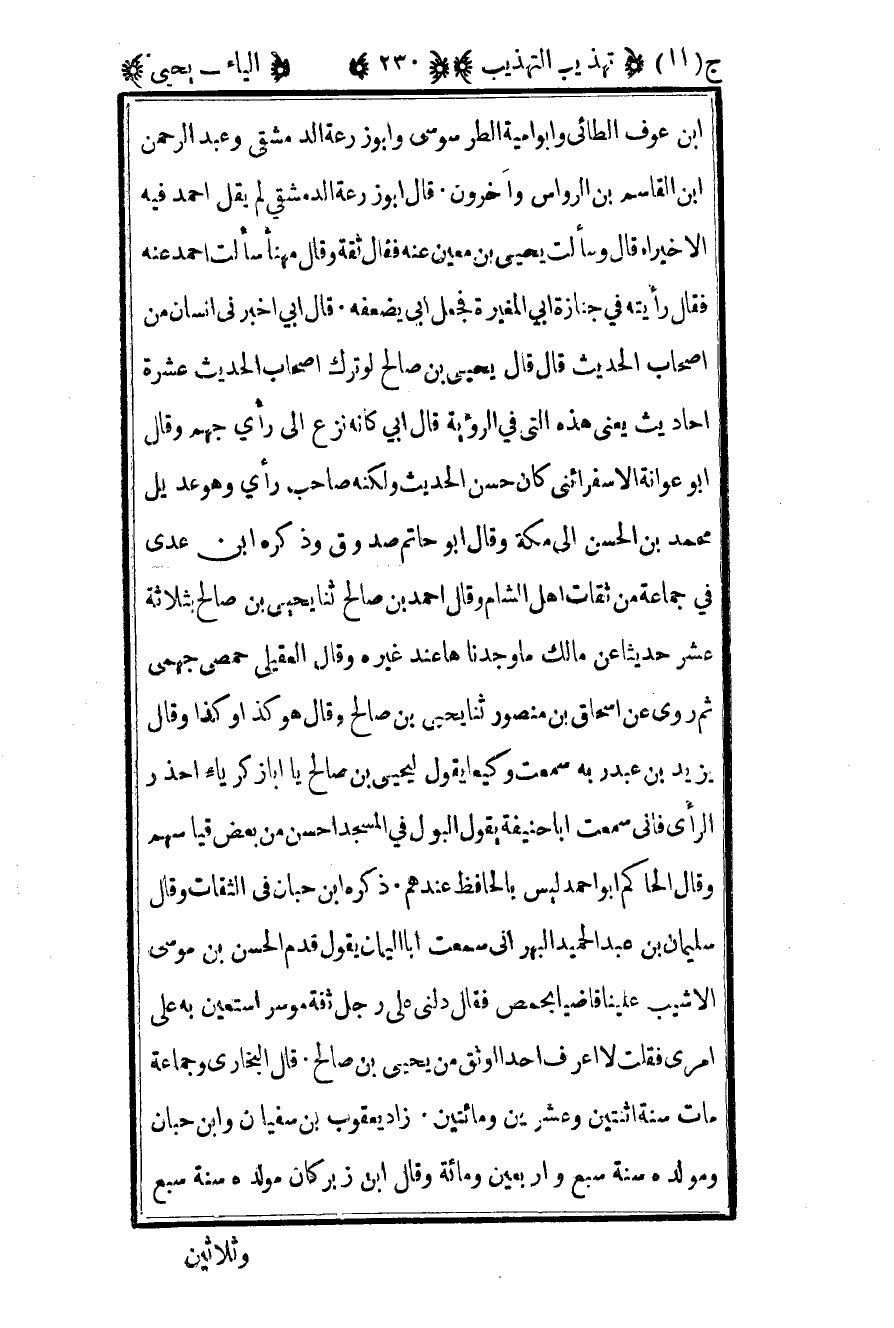 ج (١١) تهذيب التهذيب ٢٣٠ الياء - يحيى
ابن عوف الطائى وابوامية الطرسوسى وابوزرعة الدمشقى وعبد الرحمن
ابن القاسم بن الرواس وآخرون٠ قال ابوزرعة الدمشقي لم يقل احمد فيه
الاخيرا٥ قال وسألت يحيى بن معين عنه فقال ثقة وقال مهنأ سألت احمد عنه
فقال رأيته في جنازة ابي المغيرة فجعل ابي يضعفه٠ قال ابي اخبرنى انسان من
اصحاب الحديث قال قال يحيى بن صالح لو ترك اصحاب الحديث عشرة
احاديث يعنى هذه التى في الروئية قال ابي كانه نزع الى رأي جهم وقال
ابو عوانة الاسفرائنى كان حسن الحديث ولكنه صاحب رأي وهو عديل
محمد بن الحسن الى مكة وقال ابو حاتم صدوق وذكره ابن عدى
في جماعة من ثقات اهل الشام وقال احمد بن صالح ثنا يحيى بن صالح بثلاثة
عشر حديثا عن مالك ماوجدناها عند غيره وقال العقيلى حمصى جهمى
ثم روى عن اسحاق بن منصور ثنا يحيى بن صالح وقال هو كذا وكذا وقال
يزيد بن عبدربه سمعت وكيعا يقول ليحيى بن صالح يا ابازكرياء احذر
الرأى فانى سمعت اباحنيفة يقول البول في المسجد احسن من بعض قياسهم
وقال الحاكم ابو احمد ليس بالحافظ عندهم٠ ذكره ابن حبان فى الثقات وقال
سليمان بن عبد الحميد البهرانى سمعت ابااليمان يقول قدم الحسن بن موسى
الاشيب علينا قاضيا بحمص فقال دلنى على رجل ثقة موسر استعين به على
امرى فقلت لا اعرف احدا اوثق من يحيى بن صالح٠ قال البخارى وجماعة
مات سنة اثنتين وعشرين ومائتين٠ زاد يعقوب بن سفيان وابن حبان
ومولده سنة سبع واربعين ومائة وقال ابن زبركان مولده سنة سبع
وثلاثين